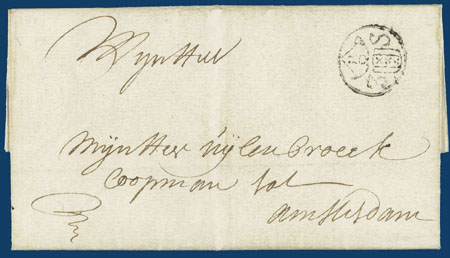 Mynheer
Mynheer uÿlenbroeck
Coopman tot
amsterdam